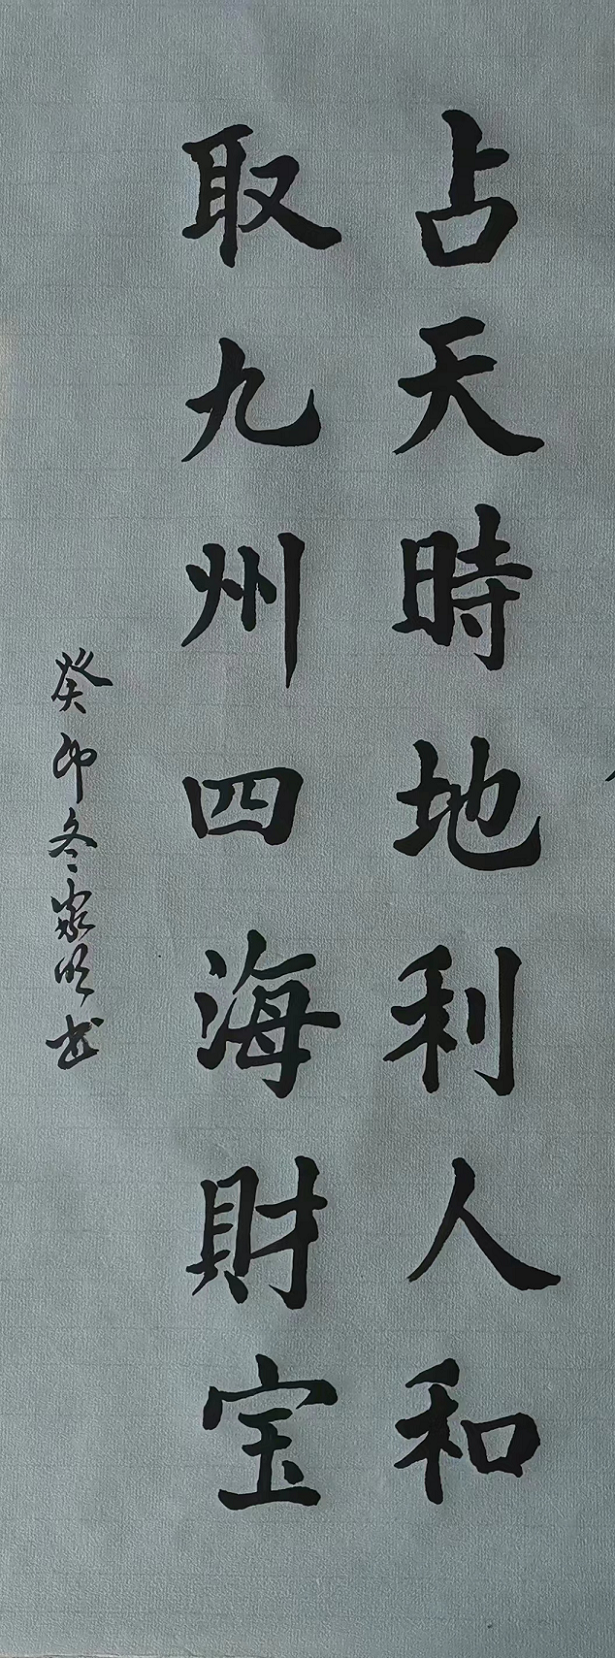 占天時地利人和
取九州四海財宝
癸卯冬家明书